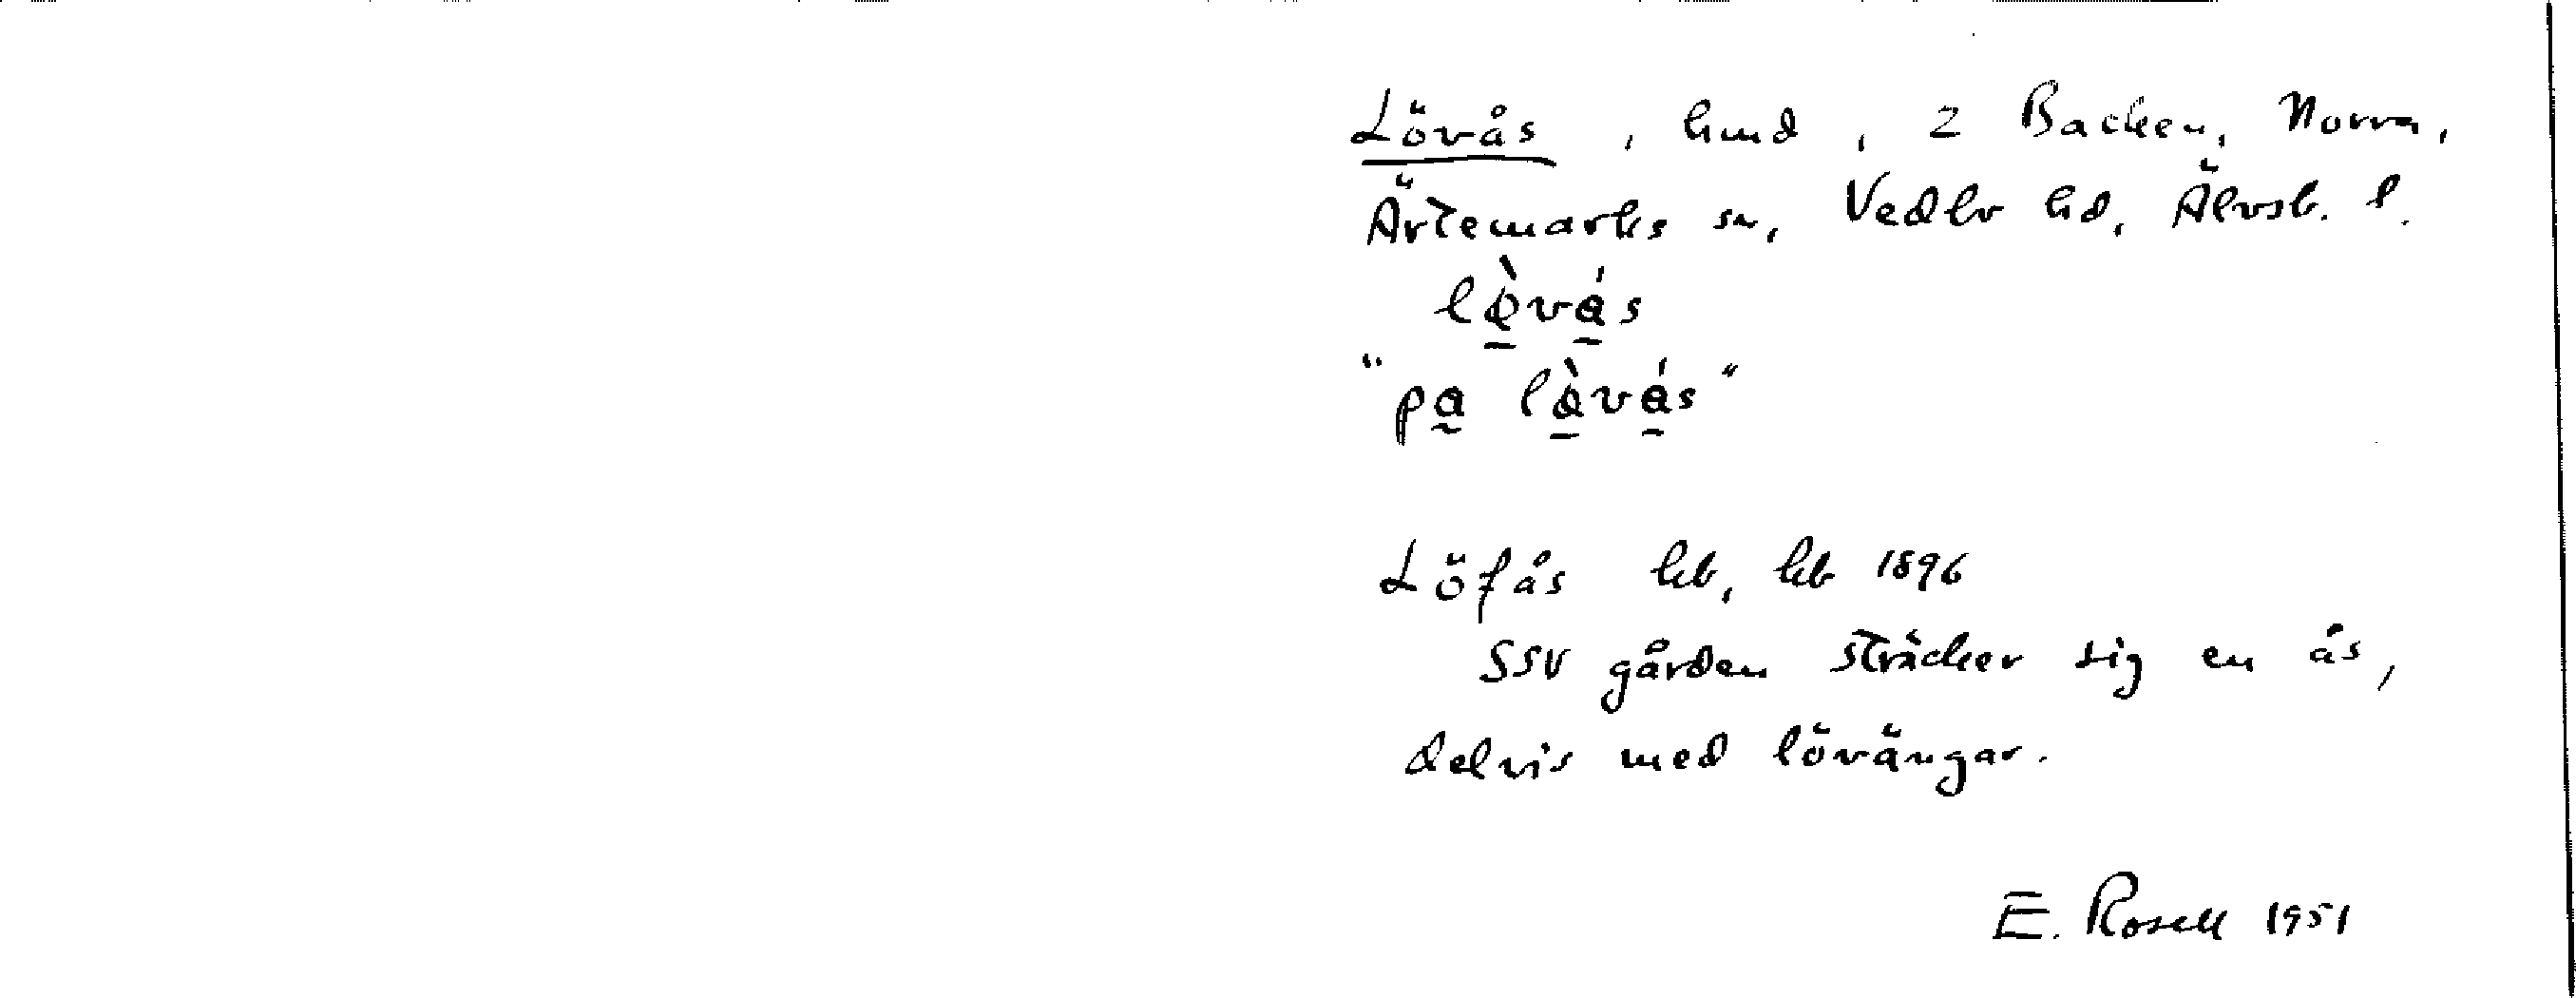 Lövås, hmd, 2 Backen, Norra,
Ärtemarks sn, Vedbo hd, Älvsb. l.
lø̀vás
"pa lø̀vás"
Löfås kb, kb 1896
SSV gården sträcker sig en ås,
delvis med lövängar.
E. Rosell 1951